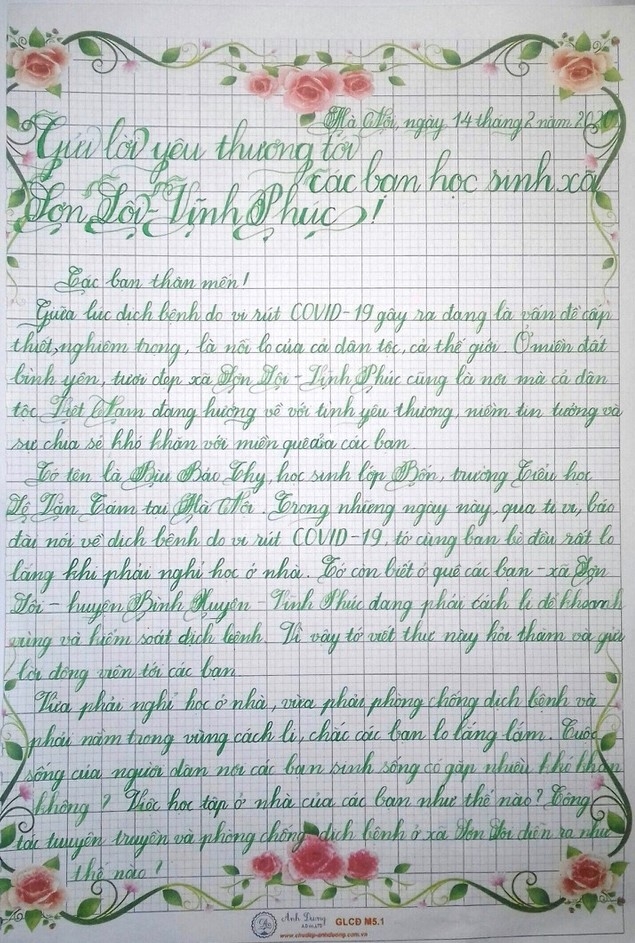 Hà Nội, ngày 14 tháng 2 năm 2020
Gửi lời yêu thương tới
các bạn học sinh xã
Sơn Lôi - Vĩnh Phúc!
Các bạn thân mến!
Giữa lúc dịch bệnh do vi rút COVID-19 gây ra đang là vấn đề cấp
thiết, nghiêm trọng, là nỗi lo của cả dân tộc, cả thế giới. Ở miền đất
bình yên, tươi đẹp xã Sơn Lôi - Vĩnh Phúc cũng là nơi mà cả dân
tộc Việt Nam đang hướng về với tình yêu thương, niềm tin tưởng và
sự chia sẻ khó khăn với miền quê của các bạn.
Tớ tên là Bảo Thy, học sinh lớp Bốn, trường Tiểu học
Văn Tám tại Hà Nội. Trong những ngày này, qua ti vi, báo
đài nói về dịch bệnh do vi rút COVID-19, tớ cùng bạn bè đều rất lo
lắng khi phải nghỉ học ở nhà. Tớ còn biết ở quê các bạn - xã Sơn
Lôi - huyện Bình Xuyên - Vĩnh Phúc đang phải cách li để khoanh
vùng và kiểm soát dịch bệnh. Vì vậy tớ viết thư này hỏi thăm và gửi
lời động viên tới các bạn.
Vừa phải nghỉ học ở nhà, vừa phải phòng chống dịch bệnh và
phải nằm trong vùng cách li, chắc các bạn lo lắng lắm. Cuộc
sống của người dân nơi các bạn sinh sống có gặp nhiều khó khăn
không? Việc học tập ở nhà của các bạn như thế nào? Công
tác tuyên truyền và phòng chống dịch bệnh ở xã Sơn Lôi diễn ra như
thế nào?
Anh Dương
GLCĐ M5.1
www.chudep-anhduong.com.vn